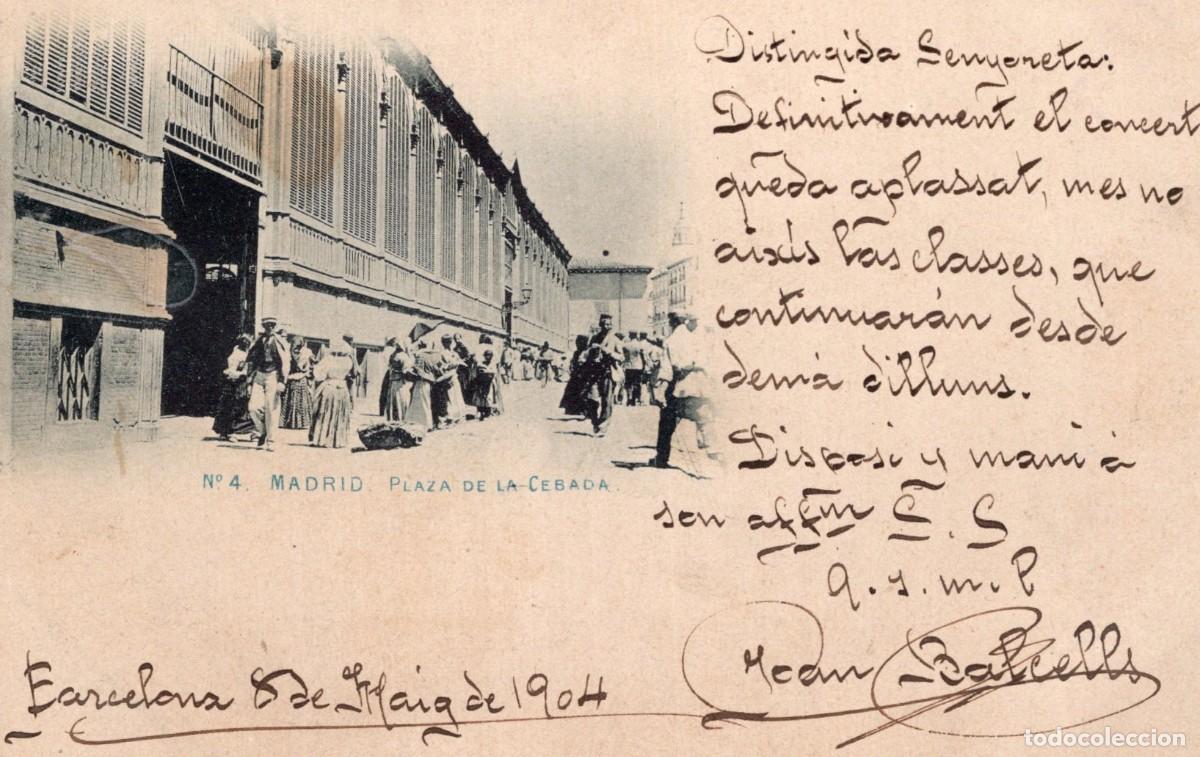 Distingida Senyoreta:
Definitivament el concert
queda aplassat, mes no
aixís las classes, que
continuarán desde
demá dilluns.
Disposi y mani á
son affm S. S
q. s. m. b
Joan Balcells
Barcelona 8 de Maig de 1904
Nº 4. MADRID. PLAZA DE LA CEBADA.
todocoleccion